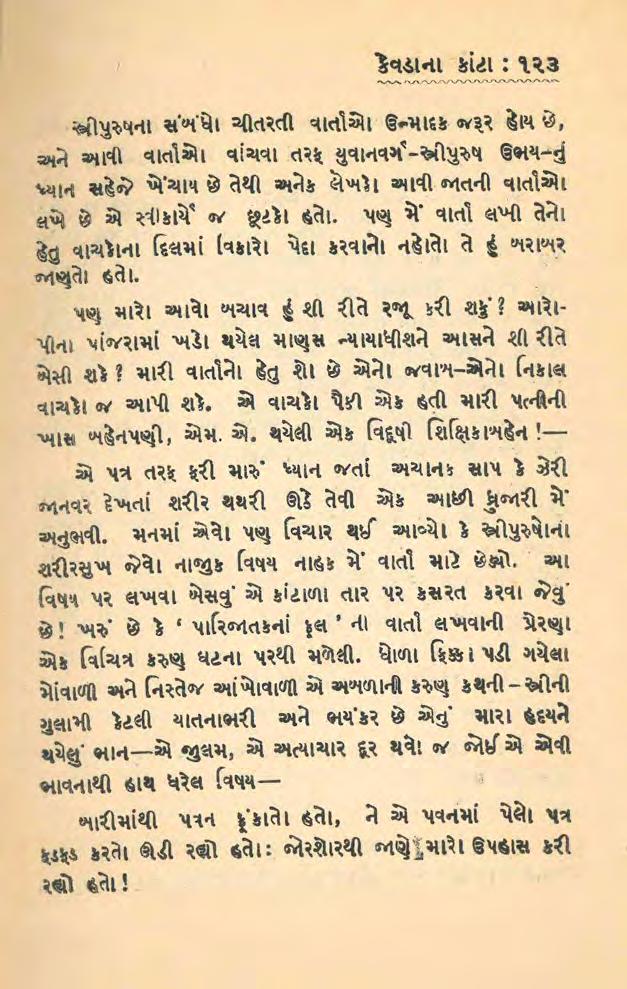 કેવડાના કાંટા : ૧૨૩
સ્ત્રીપુરુષના સંબંધો ચીતરતી વાર્તાઓ ઉન્માદક જરૂર હોય છે,
અને આવી વાર્તાઓ વાંચવા તરફ યુવાનવર્ગ–સ્ત્રીપુરુષ ઉભય–નું
ધ્યાન સહેજે ખેંચાય છે તેથી અનેક લેખકો આવી જાતની વાર્તાઓ
લખે છે એ સ્વીકાર્યે જ છૂટકો હતો. પણ મેં વાર્તા લખી તેનો
હેતુ વાચકોના દિલમાં વિકારો પેદા કરવાનો નહોતો તે હું બરાબર
જાણતો હતો.
પણ મારો આવો બચાવ હું શી રીતે રજૂ કરી શકું ? આરો-
પીના પાંજરામાં ખડો થયેલ માણસ ન્યાયાધીશને આસને શી રીતે
બેસી શકે ? મારી વાર્તાનો હેતુ શો છે એનો જવાબ–એનો નિકાલ
વાચકો જ આપી શકે. એ વાચકો પૈકી એક હતી મારી પત્નીની
ખાસ બહેનપણી, એમ. એ. થયેલી એક વિદૂષી શિક્ષિકાબહેન !—
એ પત્ર તરફ ફરી મારું ધ્યાન જતાં અચાનક સાપ કે ઝેરી
જાનવર દેખતાં શરીર થથરી ઊઠે તેવી એક આછી ધ્રુજારી મેં
અનુભવી. મનમાં એવો પણ વિચાર થઈ આવ્યો કે સ્ત્રીપુરુષોનાં
શરીરસુખ જેવો નાજુક વિષય નાહક મેં વાર્તા માટે છેડ્યો. આ
વિષય પર લખવા બેસવું એ કાંટાળા તાર પર કસરત કરવા જેવું
છે! ખરું છે કે ‘ પારિજાતકનાં ફૂલ ’ ની વાર્તા લખવાની પ્રેરણા
એક વિચિત્ર કરુણ ઘટના પરથી મળેલી. ધોળા ફિક્કા પડી ગયેલા
મોંવાળી અને નિસ્તેજ આંખોવાળી એ અબળાની કરુણ કથની – સ્ત્રીની
ગુલામી કેટલી યાતનાભરી અને ભયંકર છે એનું મારા હૃદયને
થયેલું ભાન—એ જુલમ, એ અત્યાચાર દૂર થવો જ જોઈએ એવી
ભાવનાથી હાથ ધરેલ વિષય—
બારીમાંથી પવન ફૂંકાતો હતો, ને એ પવનમાં પેલો પત્ર
ફડફડ કરતો ઊડી રહ્યો હતો: જોરશોરથી જાણે મારો ઉપહાસ કરી
રહ્યો હતો !